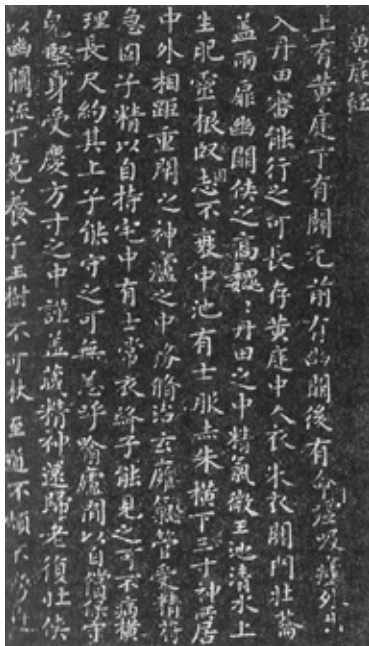 黃庭經
上有黃庭下有關元前有幽闕後有命門噓吸廬外出
入丹田審能行之可長存黃庭中人衣朱衣關門壯蘥
蓋兩扉幽闕俠之高魏丹田之中精氣微玉池清水上
生肥靈根堅志不衰中池有士服赤朱橫下三寸神所居
中外相距重閇之神廬之中務脩治玄癰氣管受精符
急固子精以自持宅中有士常衣絳子能見之可不病橫
理長尺約其上子能守之可無恙呼噏廬間以自償保守
皃堅身受慶方寸之中謹蓋藏精神還歸老復壯俠
以幽闕流下竟養子玉樹不可杖至道不煩不旁